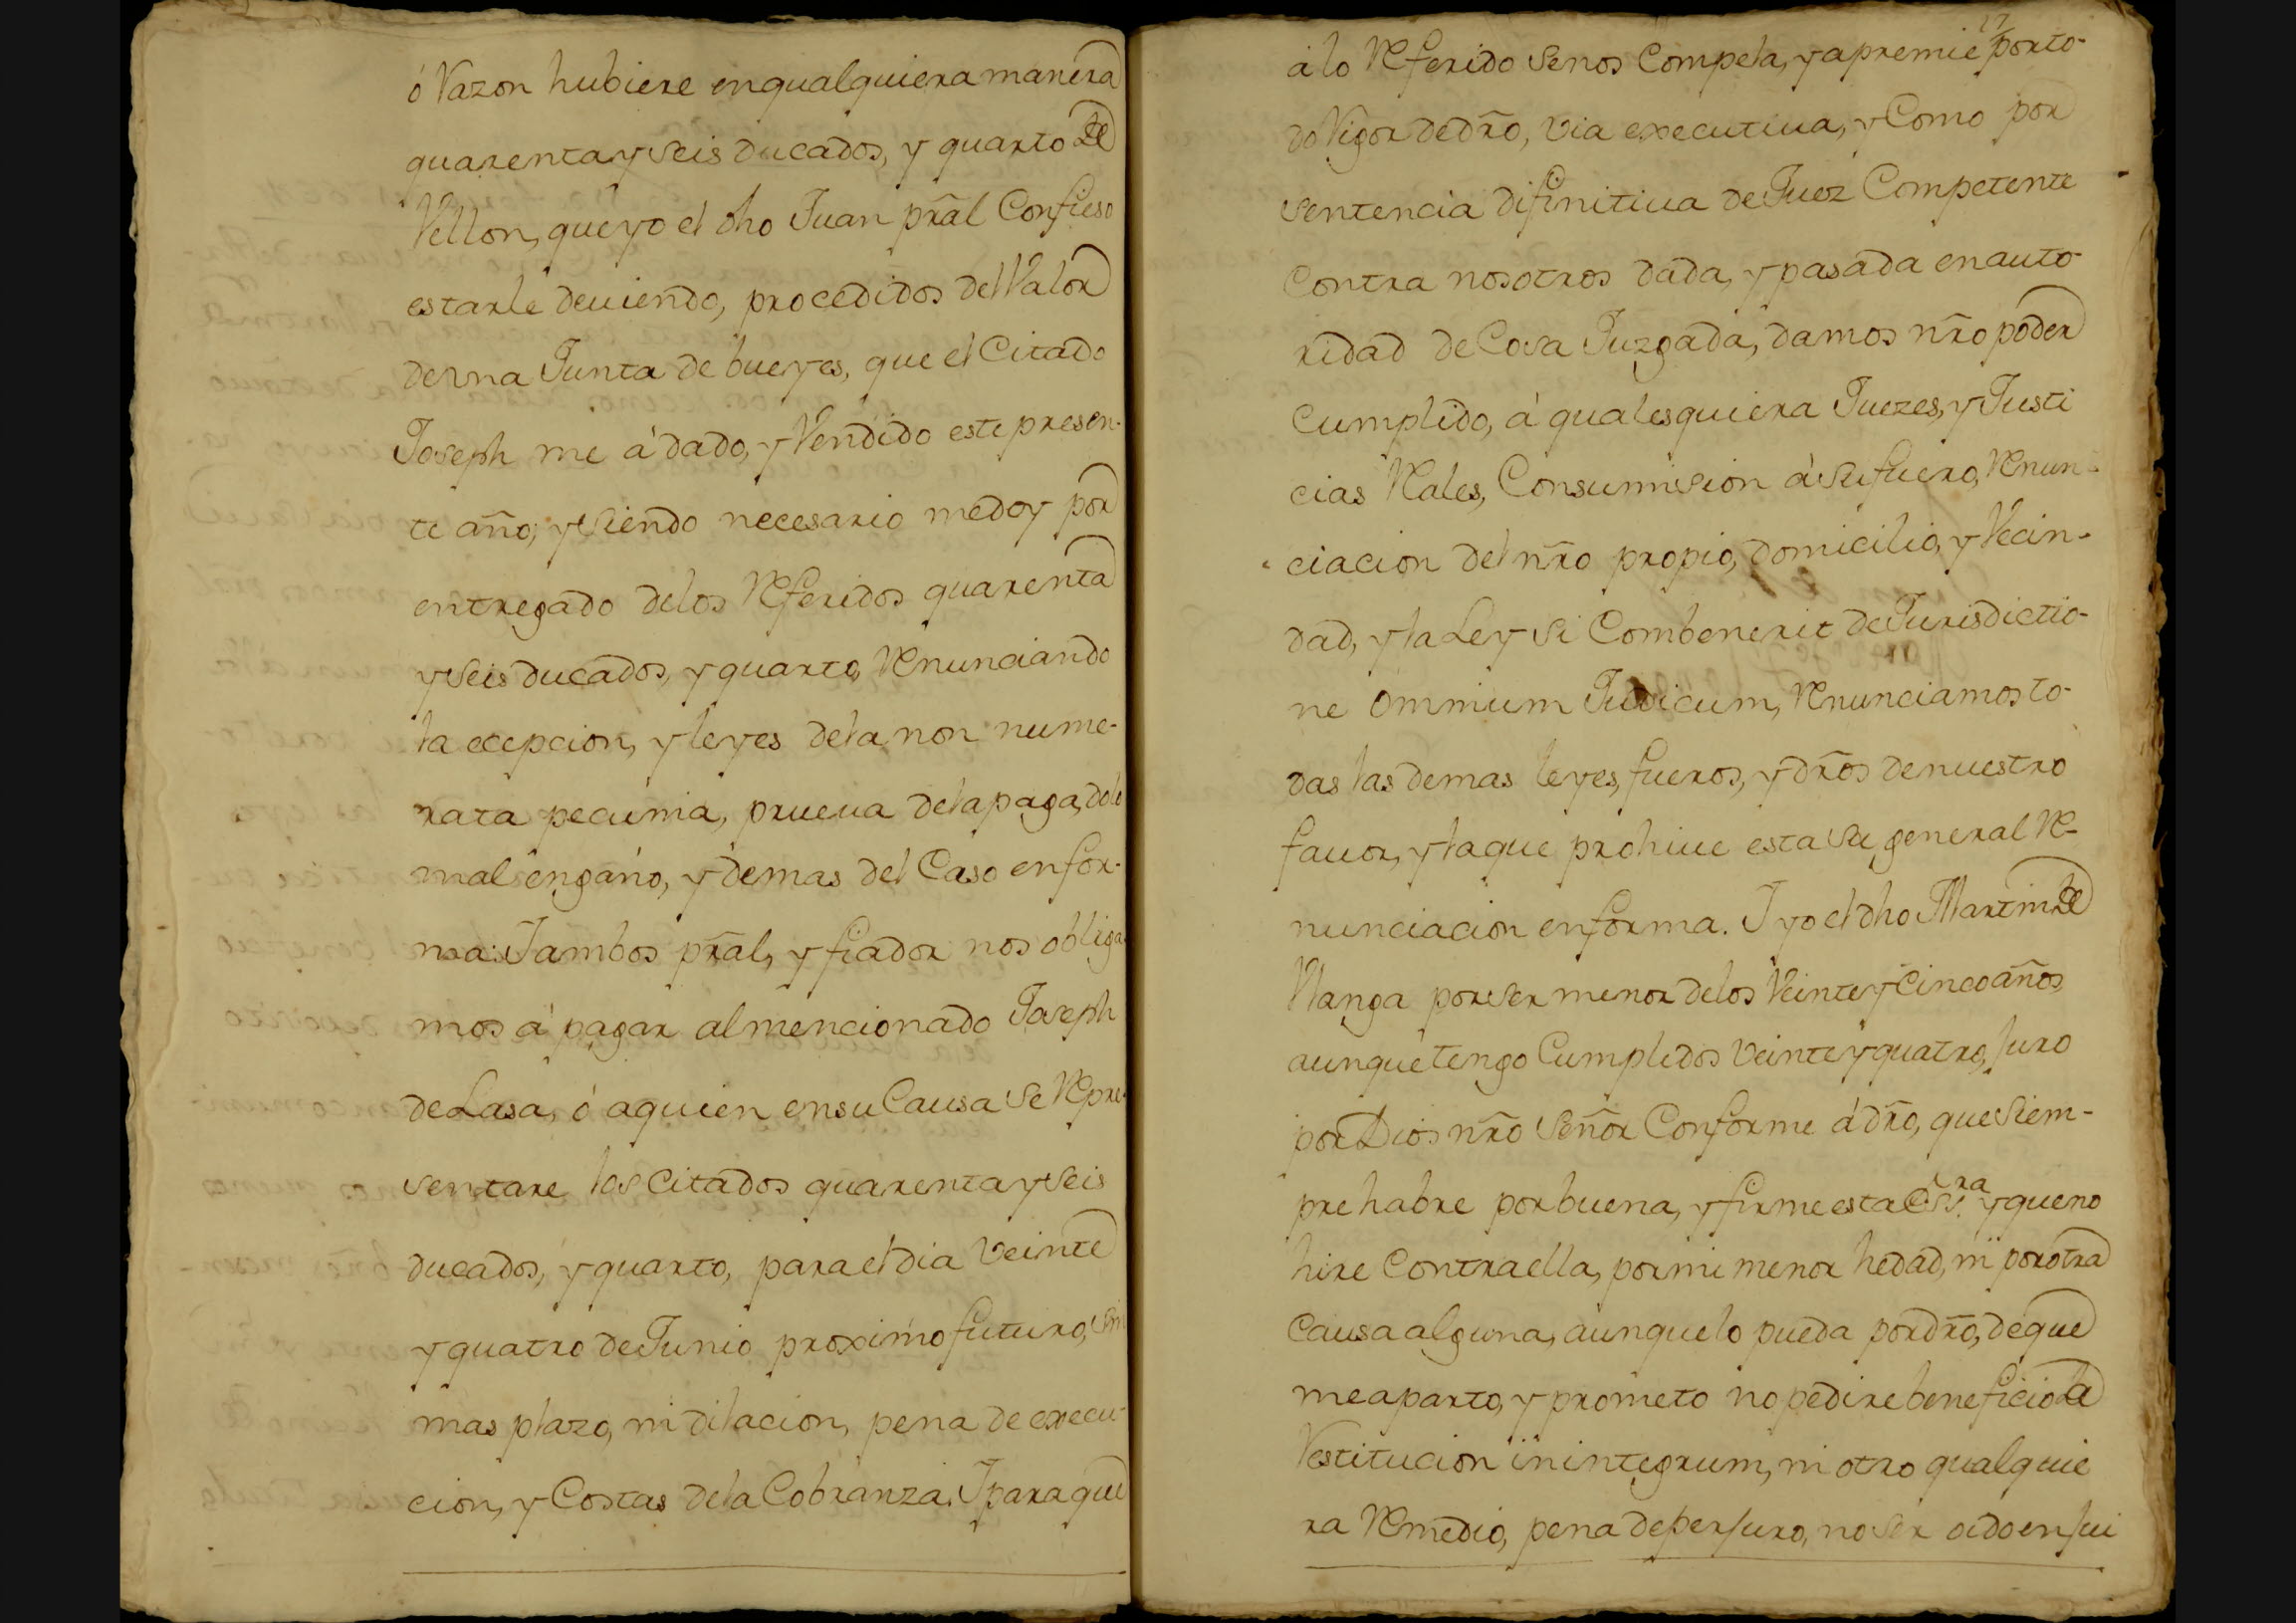 ó razon hubiere en qualquiera manera
quarenta y seis ducados, y quarto de
Vellon, que yo el dho Juan prãl Confieso
estarle deuiendo, procedidos del Valor
de vna Junta de bueyes, que el Citado
Joseph me á dado, y Vendido este presen-
te año, y siendo necesario me doy por
entregado de los Referidos quarenta
y seis ducados, y quarto, Renunciando
la ecepcion, y leyes de la non nume-
rata pecunia, prueua de la paga, dolo
mal engaño, y demas del Caso en for-
ma: I ambos prãl, y fiador nos obliga-
mos á pagar al mencionado Joseph
de Lasa, ó a quien en su Causa se Repre-
sentare los Citados quarenta y seis
ducados, y quarto, para el dia Veinte
y quatro de Junio proximo futuro, sin
mas plazo, ni dilacion, pena de execu-
cion, y Costas de la Cobranza. I para que
27
á lo Referido se nos Compela, y apremie por to-
do Rigor de dr̃o, via executiua, y Como por
sentencia difinitiua de Juez Competente
Contra nosotros dada, y pasada en auto
ridad de Cosa Juzgada, damos nr̃o poder
Cumplido, á qualesquiera Juezes, y Justi
cias Rales, Con sumision á su fuero, Renun-
ciacion del nr̃o propio, domicilio, y Vecin-
dad, y la Ley si Combenerit de Jurisdictio-
ne omnium Judicum, Renunciamos to-
das las demas leyes, fueros, y dr̃os de nuestro
fauor, y la que prohiue esta su general Re-
nunciacion en forma. I yo el dho Martin de
Vlanga por ser menor de los Veinte y Cinco años
aunque tengo Cumplidos veinte y quatro, Juro
por Dios nr̃o Señor Conforme á dr̃o, que siem-
pre habre por buena, y firme esta essra y que no
hire Contra ella, por mi menor hedad, ni por otra
Causa alguna, aunque lo pueda por dr̃o, de que
me aparto, y prometo no pedire beneficio de
Restitucion in integrum, ni otro qualquie
ra Remedio, pena de perjuro, no ser oido en Jui